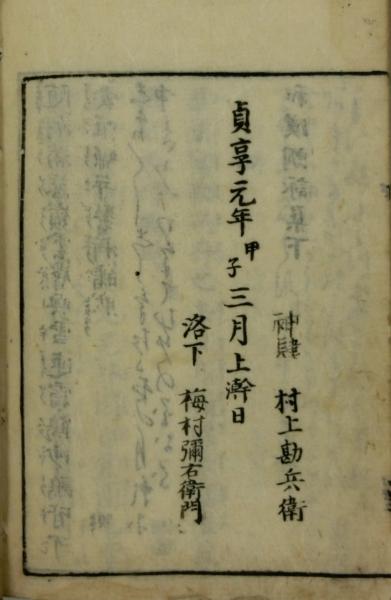 神肆 村上勘兵衛
貞享元年甲子三月上澣日
洛下 梅村彌右衛門